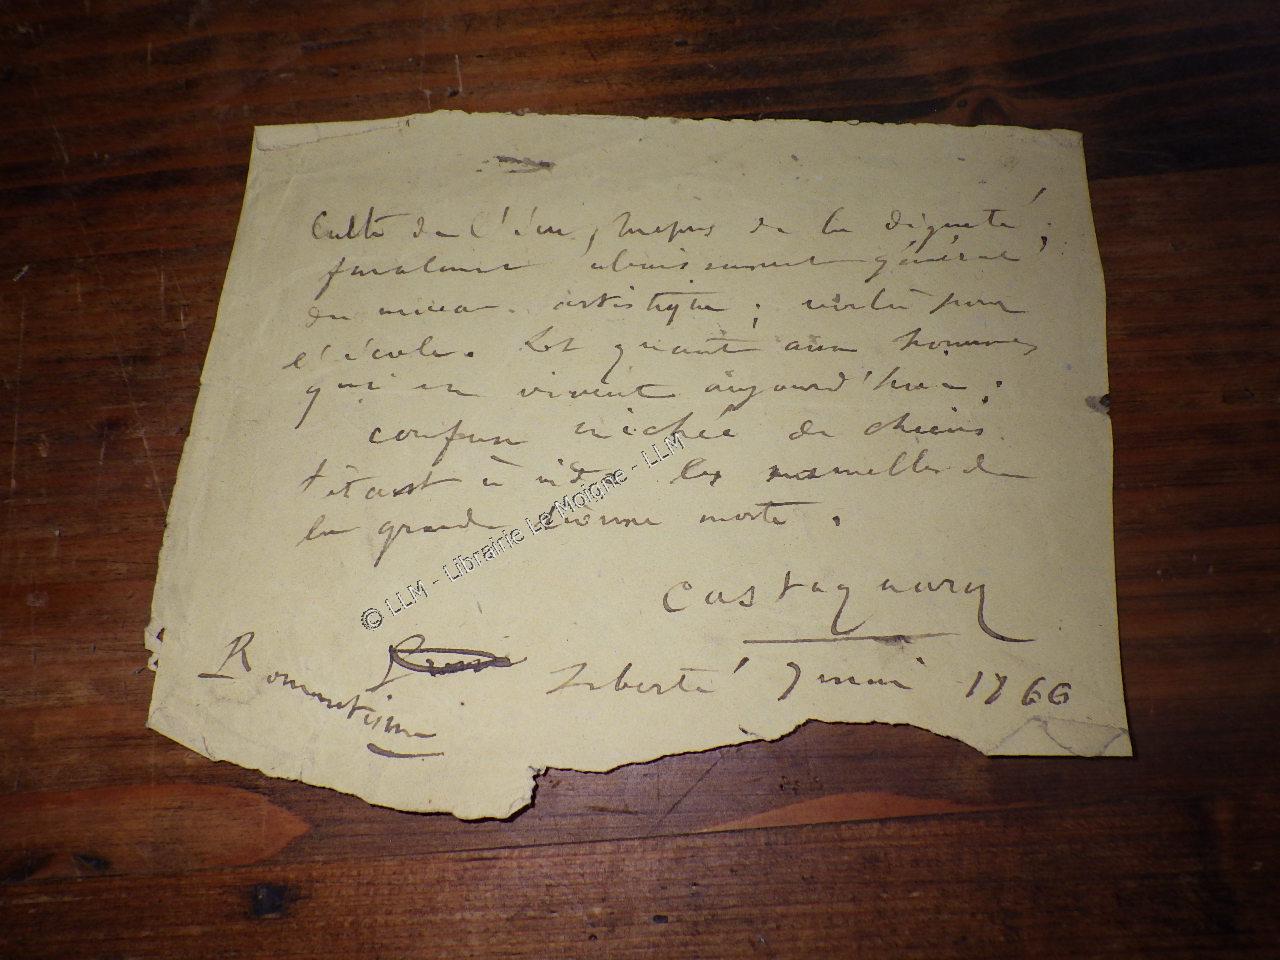 Culte de l'écu, mépris de la dignité,
abaissement général
du niveau artistique ; voilà pour
l'école. Et quant aux hommes
qui en vivent aujourd'hui :
confuse nichée de chiens
têtant à vide les mamelles de
la grande chienne morte.
Castagnary
Liberté 7 mai 1866
Romantisme
© LLM - Librairie Le Moigne - LLM